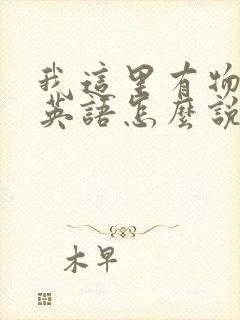 我這里有物
英語怎麼說
木早